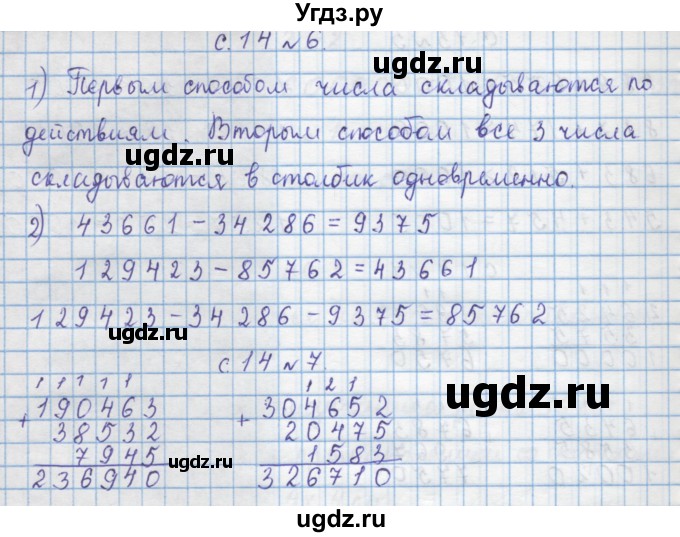 Угдз.ру
с. 14 № 6.
ugdz.ru
1) Первым способом числа складываются по
действиям. Вторым способом все 3 числа
ugdz.ru ugdz.ru
складываются в столбик одновременно.
2) 43661 - 34286 = 9375
129423 - 85762 = 43661
129423 - 34286 - 9375 = 85762
ugdz.ru ugdz.ru
с. 14 № 7.
1 1 1 1 1 1 2 1
+ 190463 + 304652
38532 20475
7945 1583
ugdz.ru
236940 326710
ugdz.ru
ugdz.ru